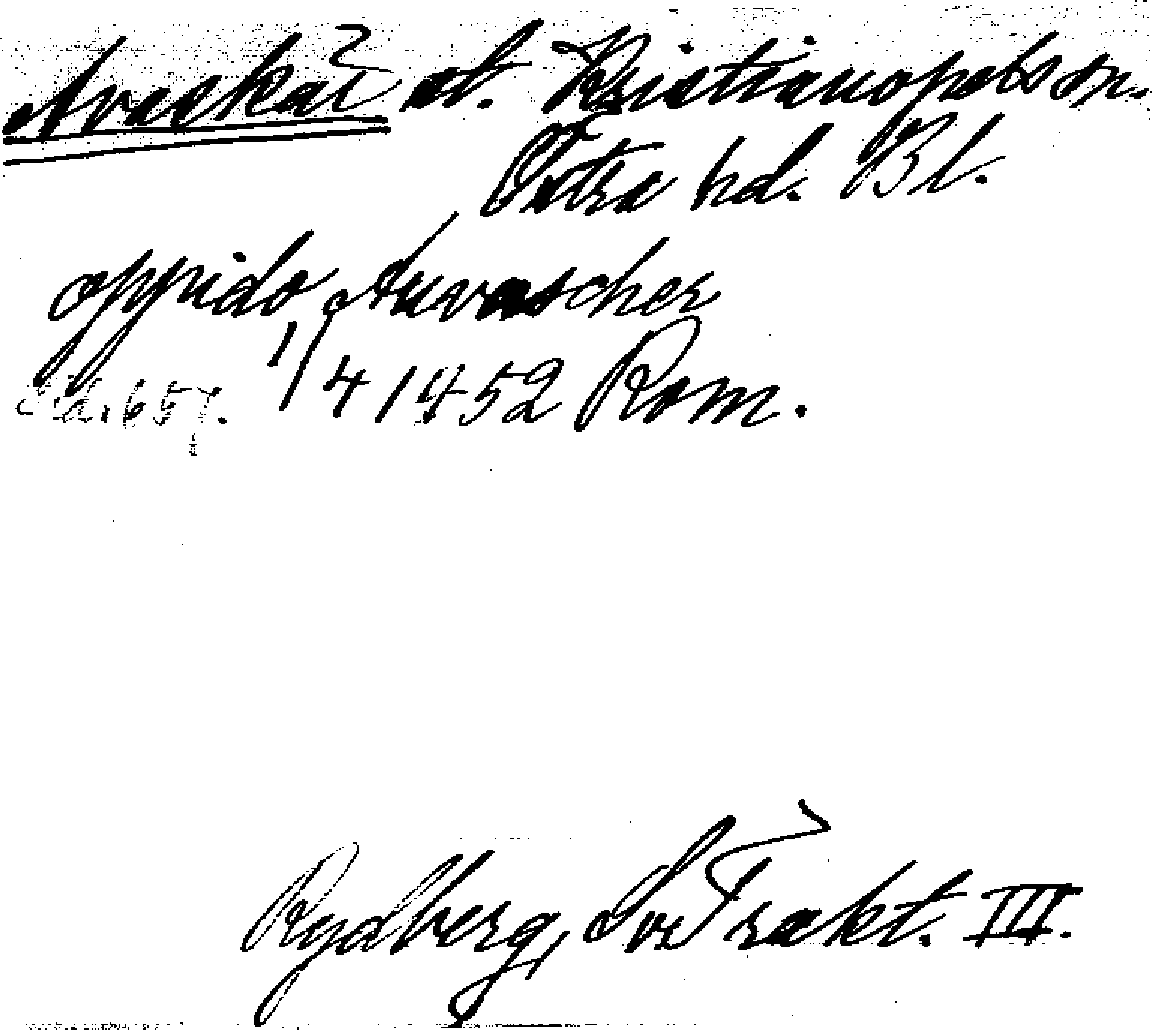 Avaskär st. Kristianopels sn.
Östra hd. Bl.
oppido Auvascher
Sid. 657. 1/4 1452 Rom.
Rydberg, Sv. Trakt. III.